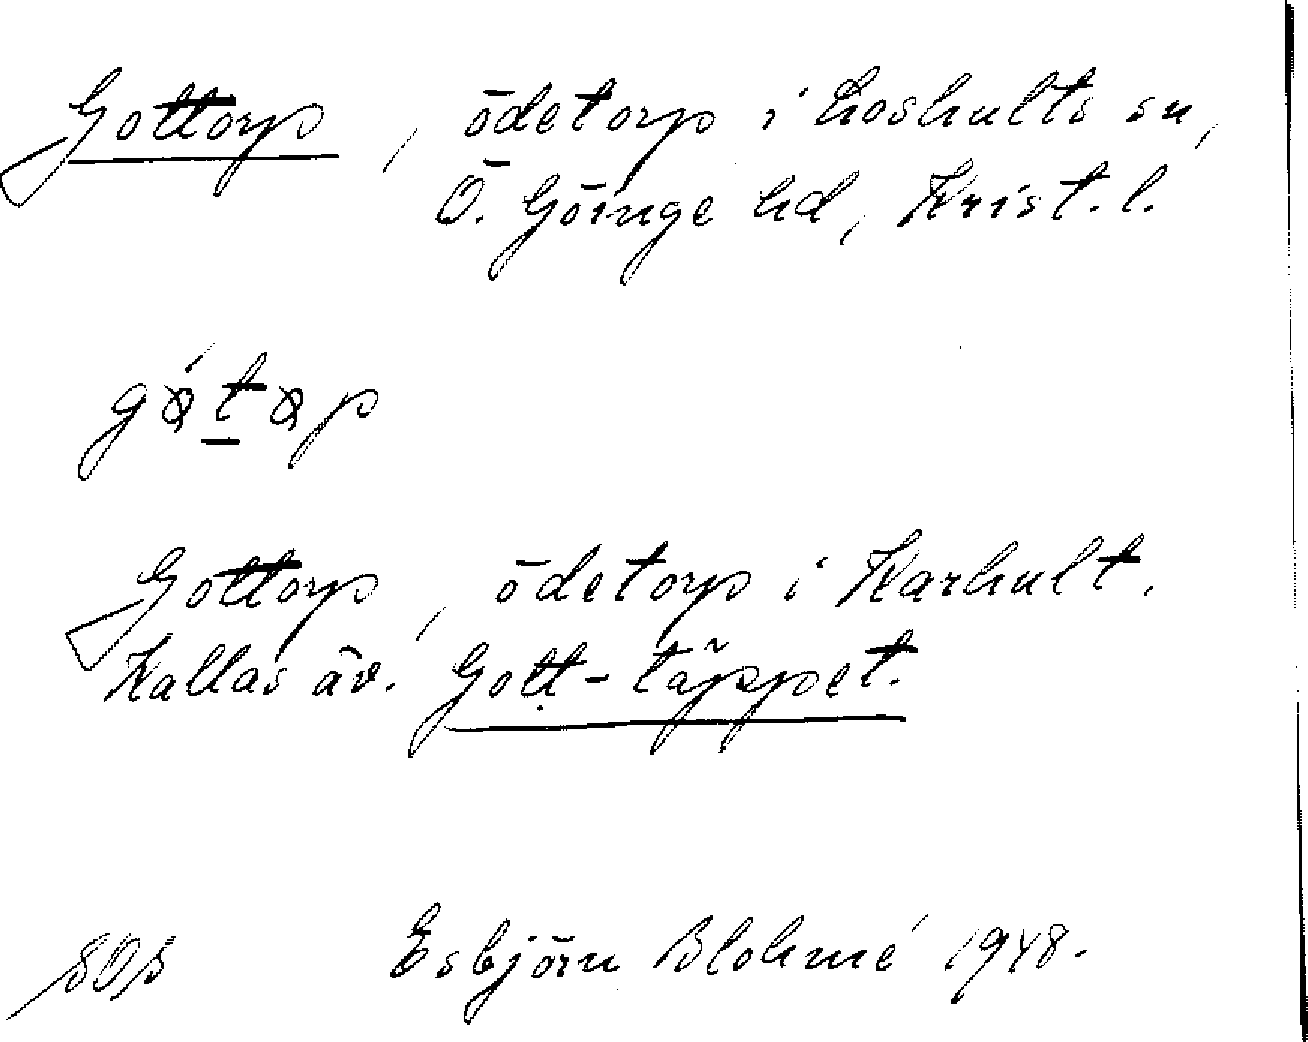 Gottorp, ödetorp i Loshults sn,
Ö. Göinge hd, Krist. l.
Gottorp, ödetorp i Karhult.
Kallas äv. Gott-täppet.
Esbjörn Blohmé 1948.